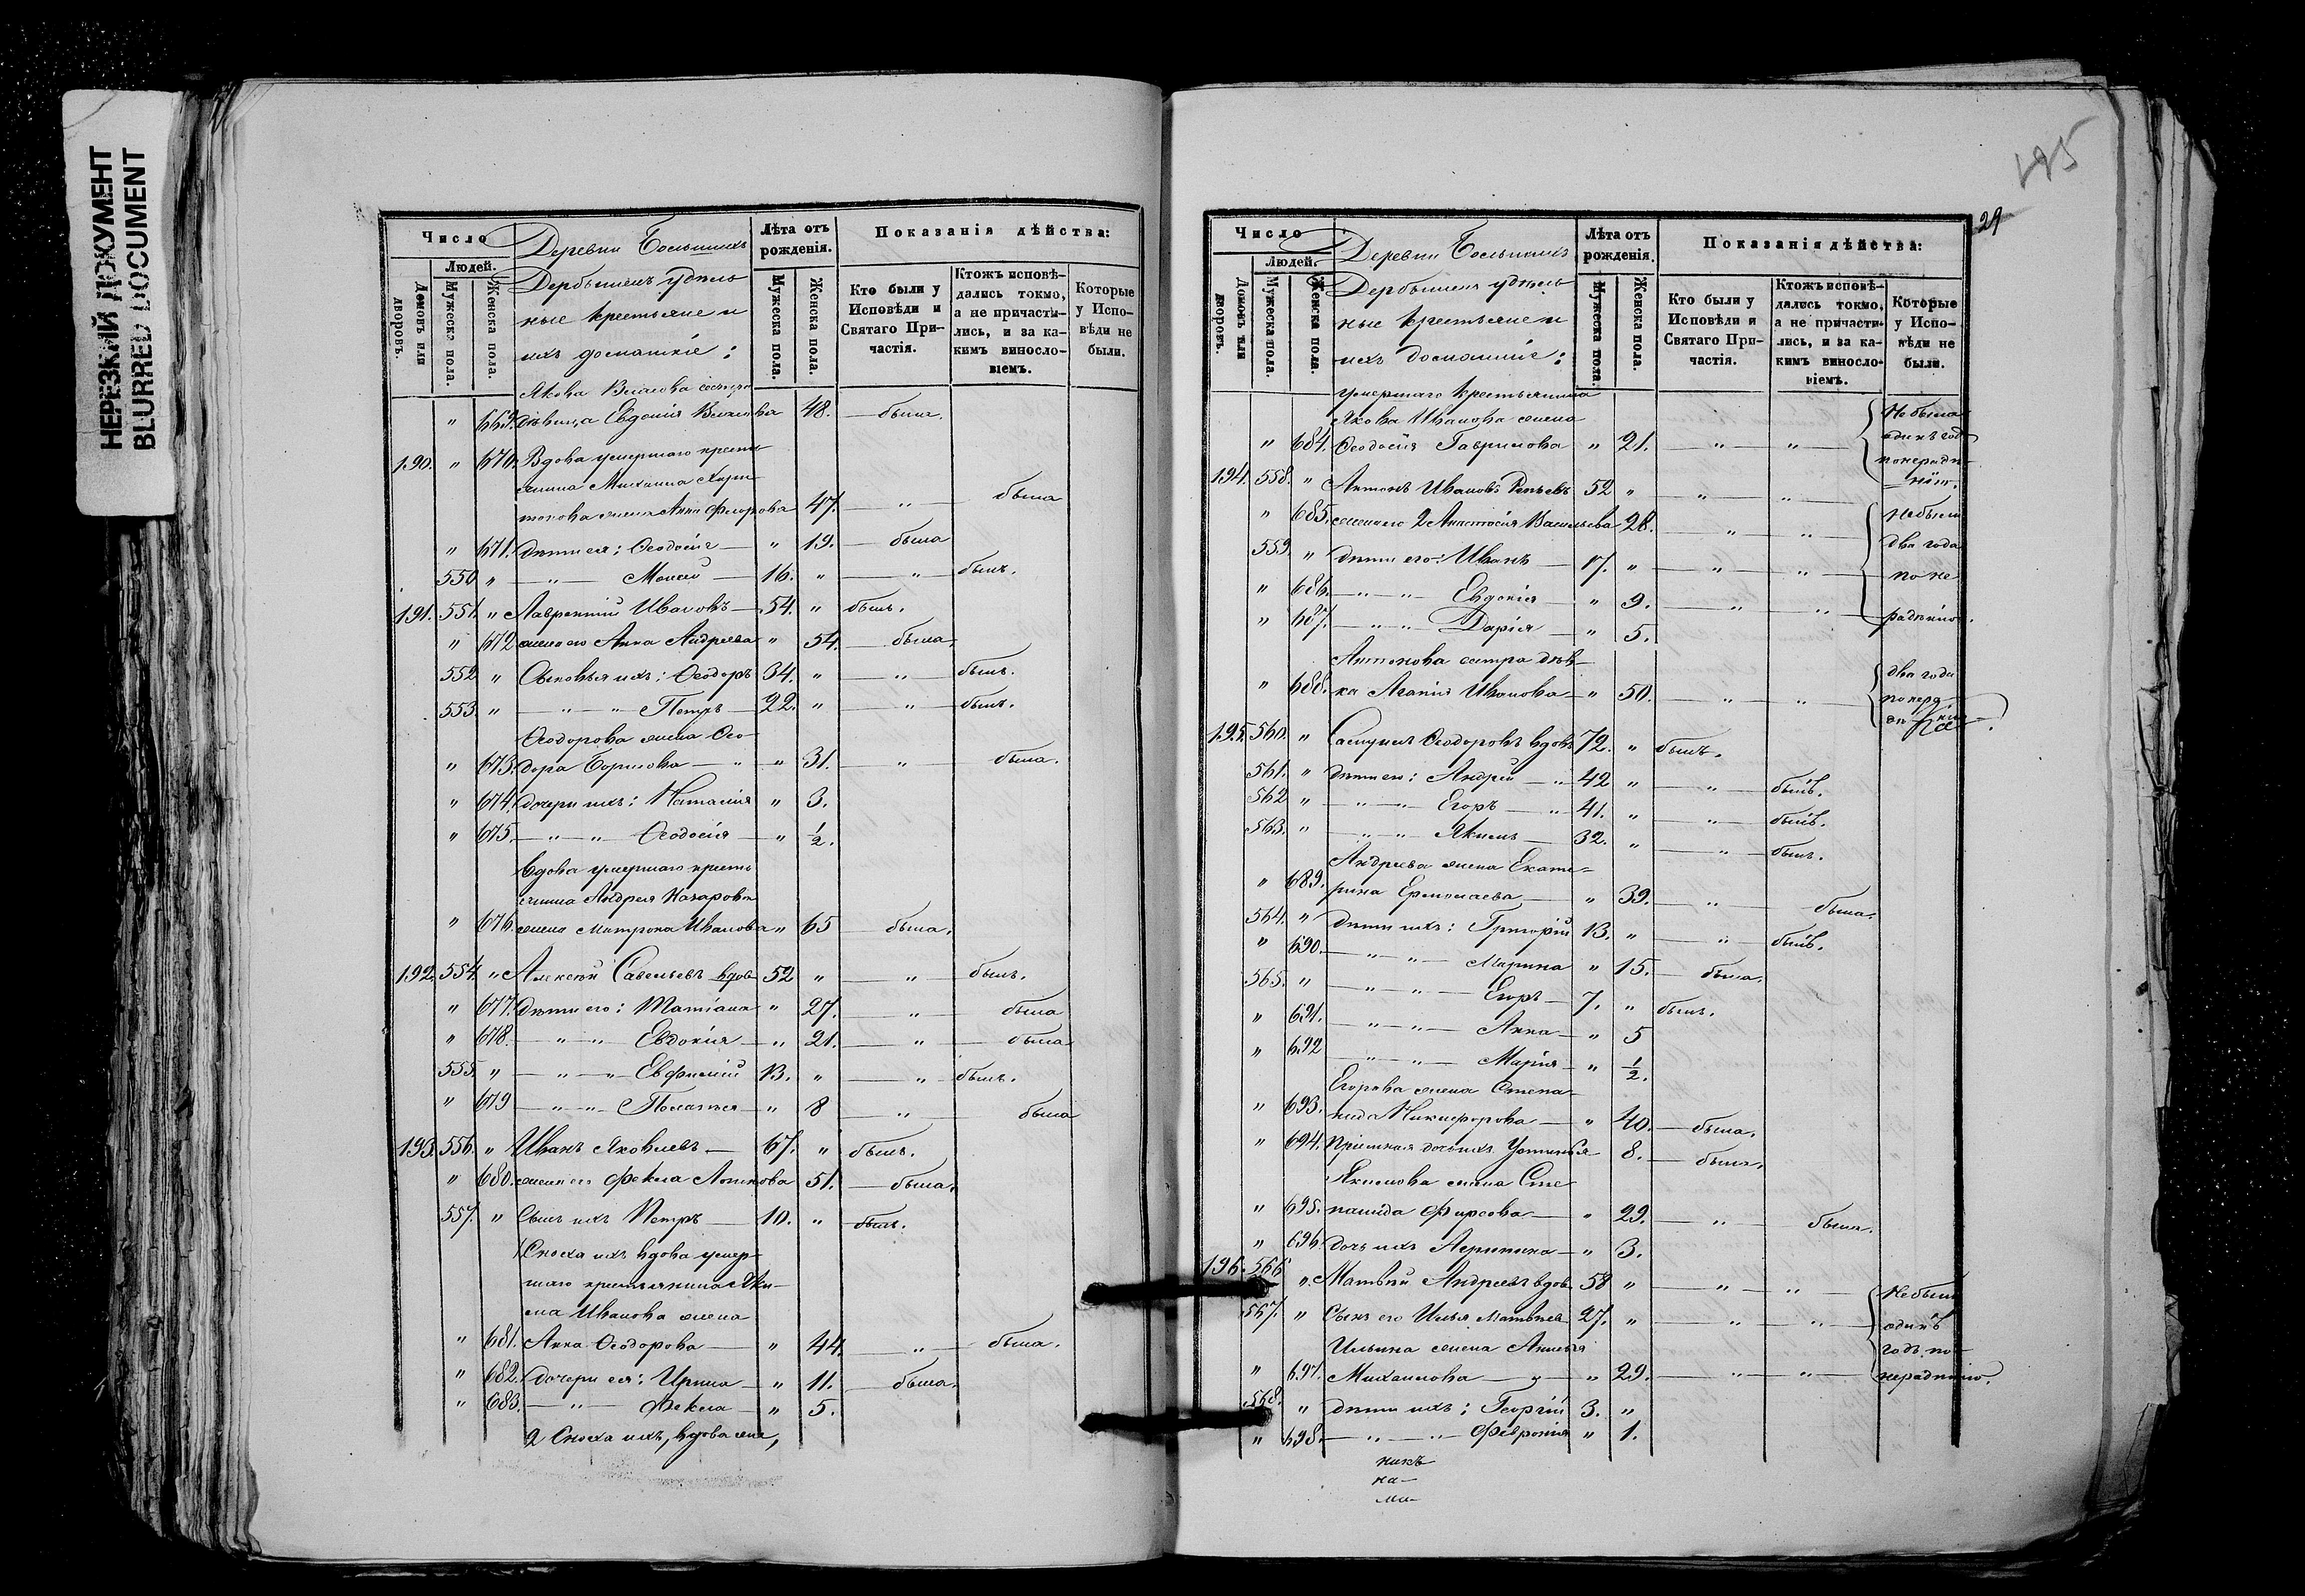 НЕРЕЗКИЙ ДОКУМЕНТ
BLURRED DOCUMENT
Число
Людей.
Домовъ или дворовъ.
Мужеска пола.
Женска пола.
Деревни Большихъ
Дербышекъ удѣль
ные крестьяне и
ихъ домашніе:
Лѣта отъ рожденія.
Мужеска пола.
Женска пола.
Показанія дѣйства:
Кто были у Исповѣди и Святаго Причастія.
Ктожъ исповѣ-
дались токмо,
а не причасти-
лись, и за ка-
кимъ винosло-
віемъ.
Которые
у Испо-
вѣди не
были.
Якова Власова сестра
" 669. дѣвица Евдокія Власова 48. — была.
190. " 670. Вдова умершаго кресть
янина Михаила Хари
тонова жена Анна Федорова 47. — " — была
" 671. дѣти ея: Ѳеодосія — " 19. — была
550 " — " — Моисей — 16. " — " — былъ.
191. 551. " Лаврентій Ивановъ — 54. " былъ.
" 672 жена его Анна Андреева " 54. — была.
552 " Сыновья ихъ: Ѳеодоръ 34. " — " — былъ.
553. " — " — " — Петръ — 22. " — " — былъ.
Ѳеодорова жена Ѳео-
" 673. дора Борисова — " " 31. — " — была.
" 674. дочери ихъ: Наталія " 3.
" 675. — " — " Ѳеодосія — " 1/2.
Вдова умершаго кресть
янина Андрея Назарова
" 676. жена Матрона Иванова " 65 — была.
192. 554. " Алексѣй Савельевъ вдов 52 " — " — былъ.
" 677. дѣти его: Татіана " 27. — " — была
" 678. — " — " Евдокія — " 21. — " — была
555. " — " — " Евфимій 13. " — " — былъ.
" 679 — " — " — Пелагія — " 8 — " — была
193. 556. " Иванъ Яковлевъ — 67. " былъ.
" 680. жена его Фекла Логинова 51. — была.
557. " Сынъ ихъ Петръ — 10. " былъ.
1 Сноха ихъ вдова умер-
шаго крестьянина Яки-
ма Иванова жена
" 681. Анна Ѳеодорова — " 44. — " — была.
" 682. дочери ея: Ирина — " 11. — была.
" 683. — " — Фекла — " 5.
2 Сноха ихъ, вдова же,
29
Число
Людей.
Домовъ или дворовъ.
Мужеска пола.
Женска пола.
Деревни Большихъ
Дербышекъ удѣль
ные крестьяне и
ихъ домашніе:
Лѣта отъ рожденія.
Мужеска пола.
Женска пола.
Показанія дѣйства:
Кто были у Исповѣди и Святаго Причастія.
Ктожъ исповѣ-
дались токмо,
а не причасти-
лись, и за ка-
кимъ винosло-
віемъ.
Которые
у Испо-
вѣди не
были.
умершаго крестьянина
Якова Иванова жена
" 684. Ѳеодосія Гаврилова " 21. — " — " — Не была
одинъ годъ
по нерадѣ
нію.
194. 558. " Антонъ Ивановъ 52 " — " — " —
" 685. жена его 2 Анастасія Васильева 28. — " — " — Не были
два года
по не
радѣнію.
559. " дѣти его: Иванъ — 17. " — " — " —
" 686. — " — " Евдокія — " 9. — " — " —
" 687. — " — " Дарія — " 5.
Антонова сестра дѣв-
" 688. ка Агапія Иванова — " 50. — " — " — два года
по нерд.
195. 560. " Самуилъ Ѳеодоровъ вдовъ 72. " былъ.
561. " дѣти его: Андрей — " 42 " — " — былъ.
562 " — " — " Егоръ — " 41. " — " — былъ.
563. " — " — " Якимъ — 32. " — " — былъ.
Андреева жена Екате-
" 689. рина Ермолаева — " 39. — " — была.
564. " дѣти ихъ: Григорій 13. " — " — былъ.
" 690. — " — " — Марина " 15. — была.
565. " — " — " — Егоръ — 7. " былъ.
" 691. — " — " — Анна — " 5
" 692 — " — " — Марія — " 1/2.
Егорова жена Степа-
" 693. нида Никифорова — " 40. — была.
" 694. Пріемная дочь ихъ Устинья 8. — была.
Якимова жена Сте
" 695. панида Фирсова — " 29. — " — была.
" 696. дочь ихъ Агрипина — " 3.
196. 566 " Матвѣй Андреевъ вдов 58 " — " — " — Не были
одинъ
годъ по
нерадѣнію.
567. " Сынъ его Илья Матвѣев 27. " — " — " —
Ильина жена Анисья
" 697. Михаилова — " — " 29. — " — " —
568. " дѣти ихъ: Георгій 3. "
" 698. — " — " Февронія " 1.
никъ
на-
ми-